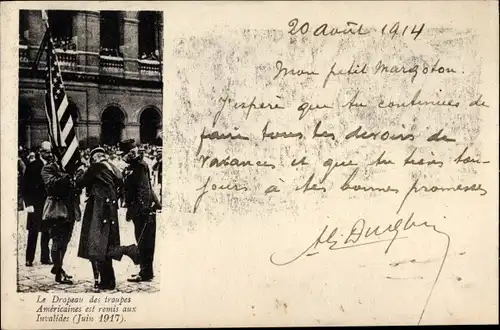 20 Août 1914
Mon petit Margoton.
J'espère que tu continues de
faire tous les devoirs de
vacances et que tu tiens tou-
jours à tes bonnes promesses
Le Drapeau des troupes
Américaines est remis aux
Invalides (Juin 1917).